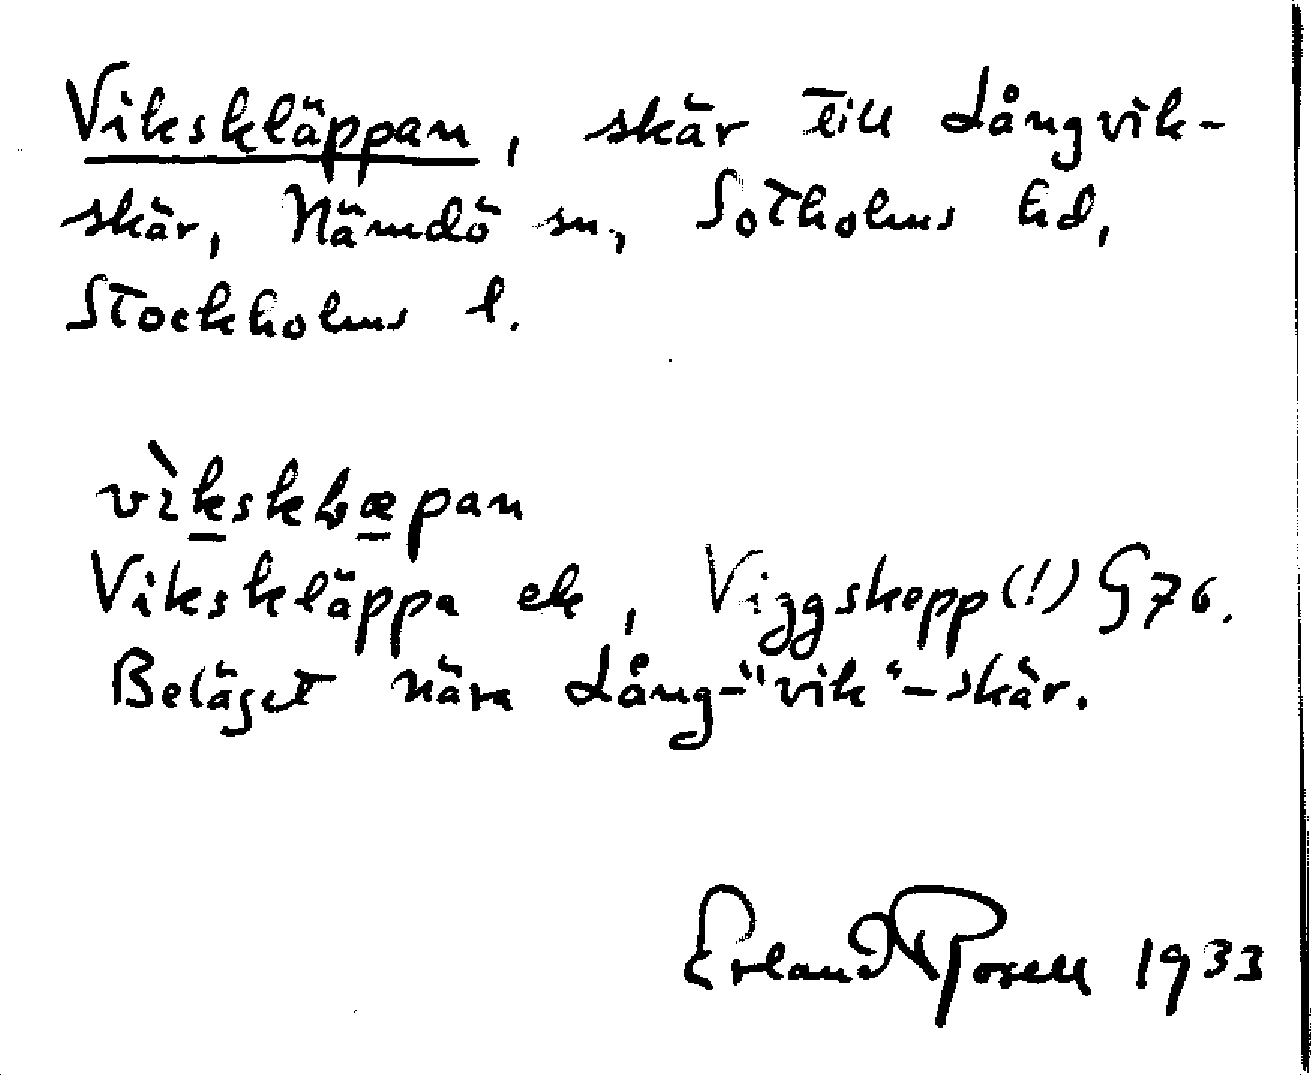 Vikskläppan, skär till Långvik-
skär, Nämdö sn, Sotholms hd,
Stockholms l.
viksklæpan
Vikskläppa ek, Viggskopp(!) G76.
Beläget nära Lång-"vik"-skär.
Erland Rosell 1933